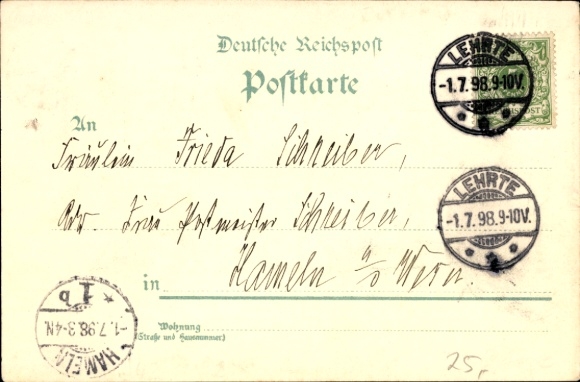 Deutsche Reichspost
Postkarte
LEHRTE
-1.7.98.9-10V.
An
Fräulein Frieda Schreiber,
Adr. Frau Postmeister Schreiber,
LEHRTE
-1.7.98.9-10V.
in Hameln a/d Weser.
HAMELN
-1.7.98.3-4N.
* 1b
Wohnung
(Straße und Hausnummer)
25,